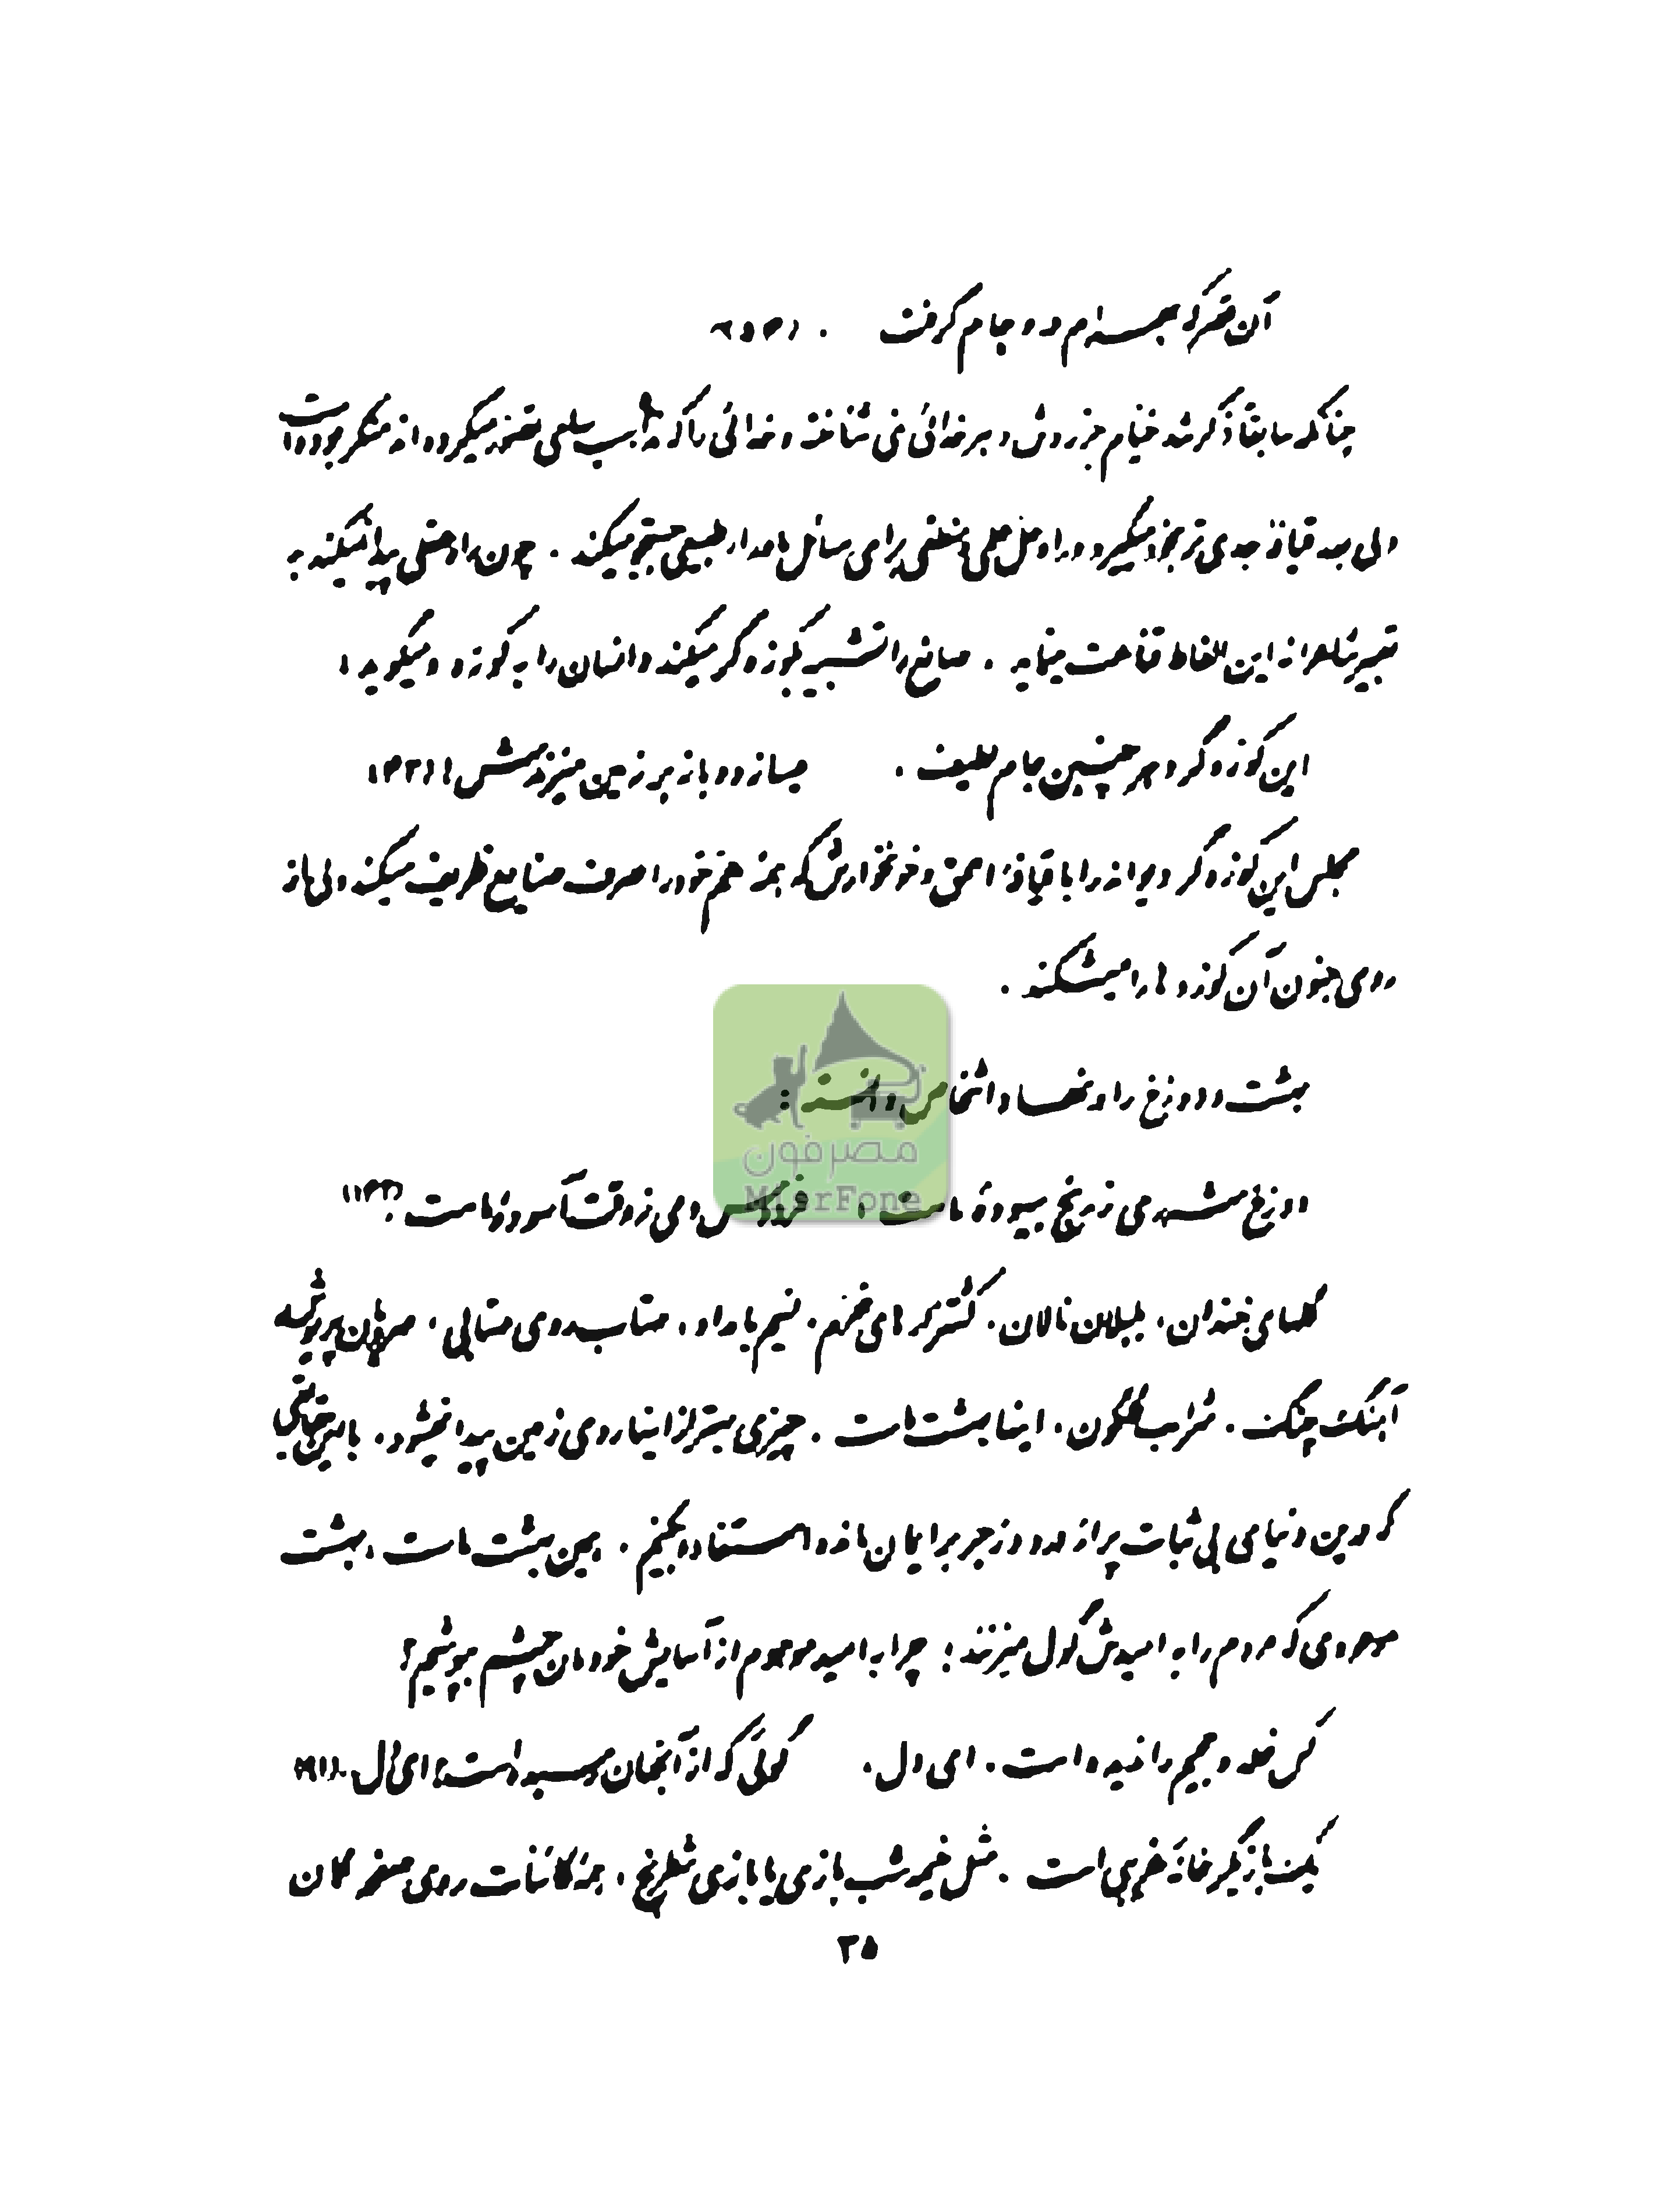 آن قصر که بهرام درو جام گرفت .
چنانکه سابقاً ذکر شد خیام جز روش دهر خدائی نمی شناخته و خدائی را که مذاهب سامی تصور میکرده اند منکر بوده است
ولی بعد قیافه جدی تر بخود میگیرد و راه حل علمی و منطقی برای مسائل ماوراء طبیعی جستجو میکند . چون راه عقلی پیدا نمیکند به
تعبیر شاعرانه این الفاظ قناعت مینماید . صانع را تشبیه بکوزه گر میکند و انسان را به کوزه و میگوید :
این کوزه گر دهر چنین جام لطیف . میسازد و باز بر زمین میزندش ! (۴۳)
مجلس این کوزه گر دیوانه را با قیافه احمق و خونخوارش که همه هم خود را صرف صنایع ظریف میکند ولی از
روی جنون آن کوزه ها را میشکند .
بهشت و دوزخ را در نهاد اشخاص دانسته :
دوزخ شرری ز رنج بیهوده ماست ، فردوس دمی ز وقت آسوده ماست .
گلهای خندان ، بلبلان نالان ، کشتزارهای خرم ، نسیم بامداد ، مهتاب روی مهتابی ، مهرویان پریوش
آهنگ چنگ ، شراب گلگون ، اینها بهشت ماست . چیزی بهتر از اینها روی زمین پیدا نمیشود ، با این حقایقی
که درین دنیای بی ثبات پر از درد و زجر برایمان مانده استفاده بکنیم . همین بهشت ماست ، بهشت
موعودی که مردم را به امیدش گول میزنند ! چرا به امید موهوم از آسایش خودمان چشم بپوشیم ؟
کس خلد و جحیم را ندیده است ، ای دل ، گوئی که از آنجهان رسیده است ؟ ای دل ..
یکمیت بازیگر خانه غریبی است . مثل خیمه شب بازی یا بازی شطرنج ، همه کائنات روی صفحه گمان
۳۵
مصرفون
MisrFone